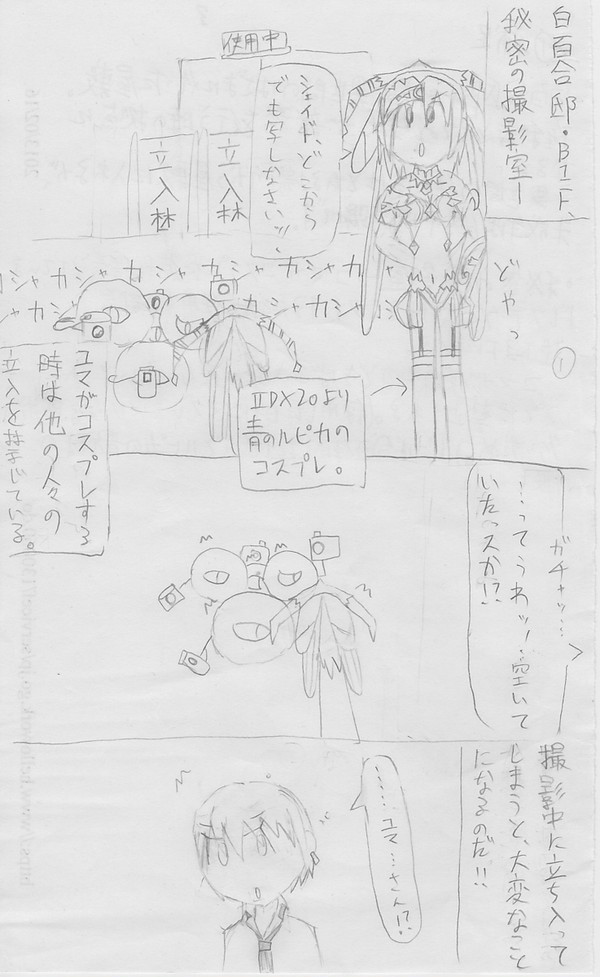 白百合邸・B1F、
秘密の撮影室ー
使用中
シェイド、どこから
でも写しなさいッ、
立入禁
立入禁
どやっ
カシャカシャカシャカシャカシャ
①
ⅡDX20より
青のルピカの
コスプレ。
ユマがコスプレする
時は他の人々の
立入を禁じている。
ガチャッ…
…ってうわッ！空いて
いたっスか!?
撮影中に立ち入って
しまうと、大変なこと
になるのだ!!
……ユマ…さん!?